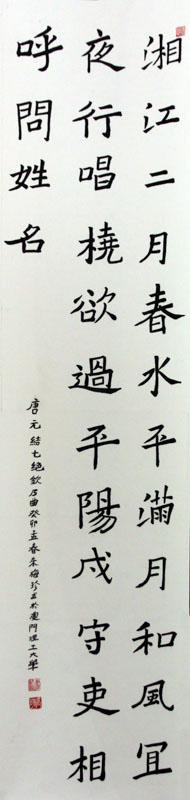 湘江二月春水平滿月和風宜
夜行唱橈欲過平陽戍守吏相
呼問姓名
唐元結七絕欸乃曲癸卯孟春朱梅珍書於廈門理工大學